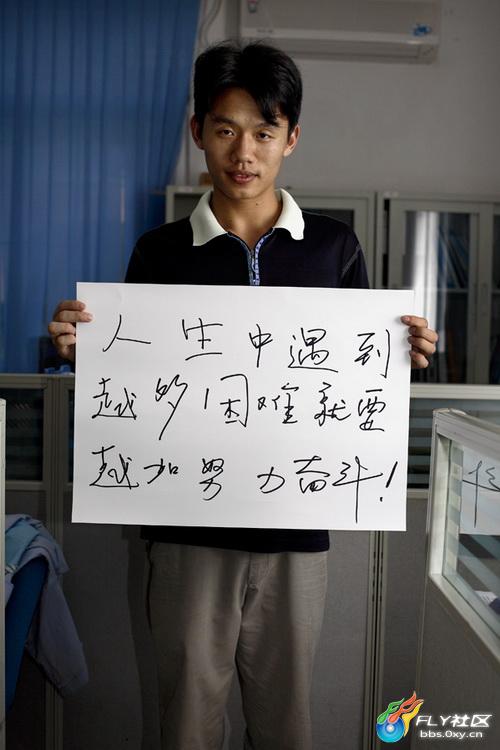 人生中遇到
越多困难就要
越加努力奋斗!
FLY社区
bbs.0xy.cn